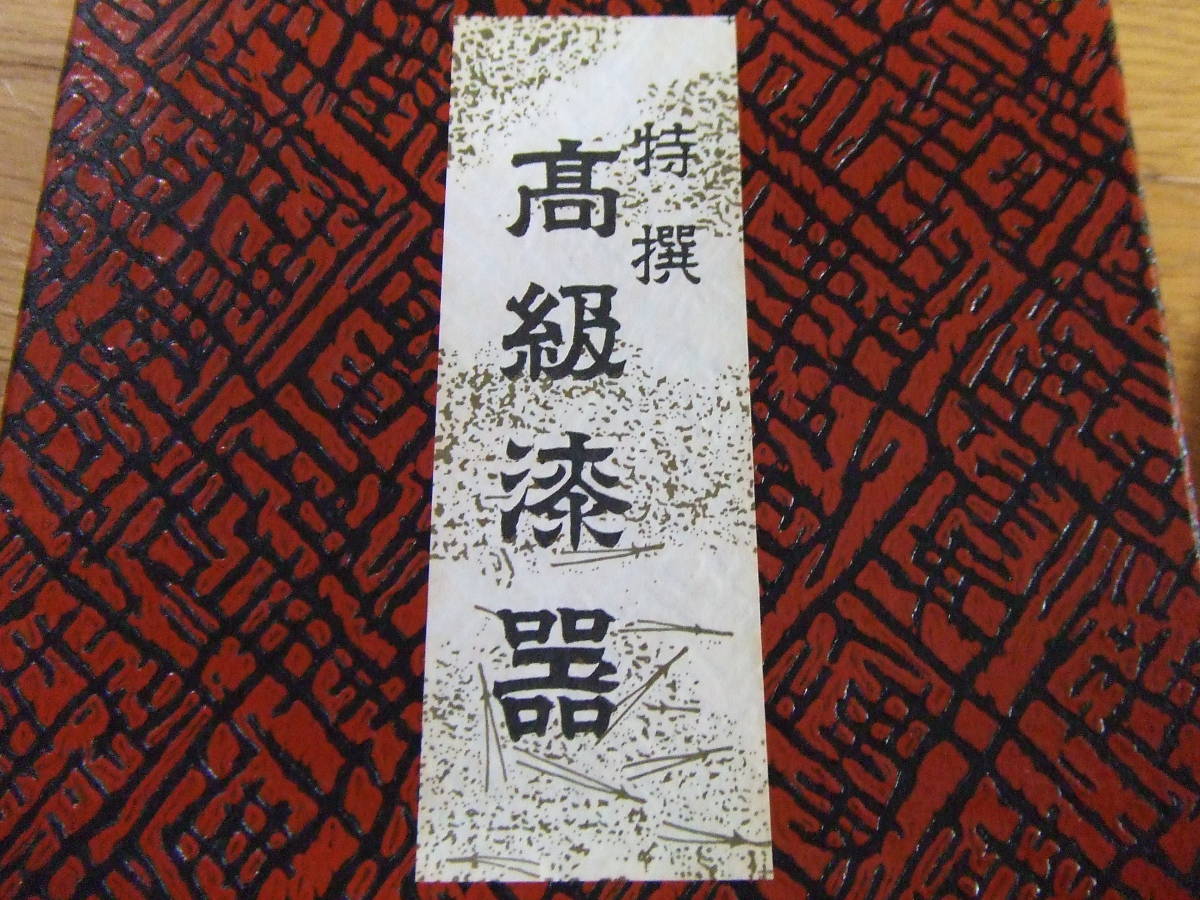 特撰
髙級漆器